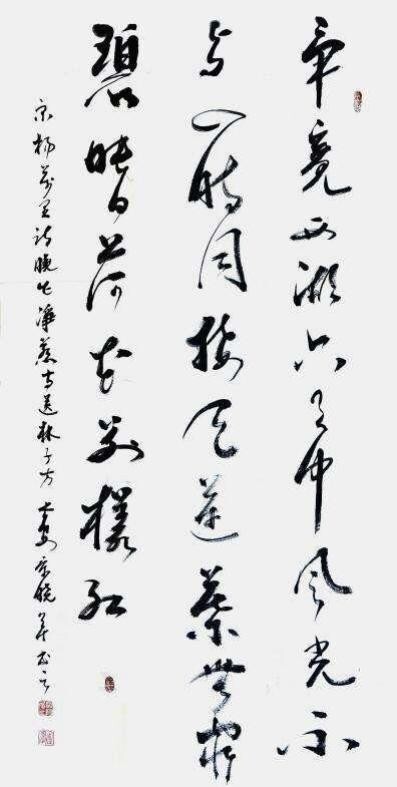 畢竟西湖六月中風光不
与四時同接天蓮葉無窮
碧映日荷花别樣紅
宋楊萬里詩曉出淨慈寺送林子方